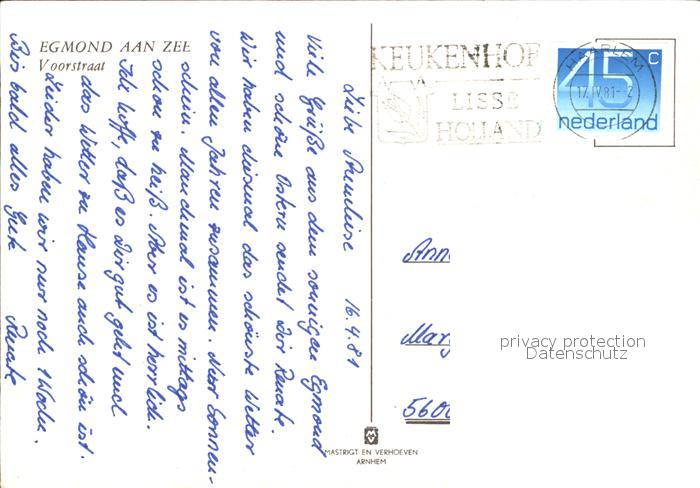 EGMOND AAN ZEE
Voorstraat
Liebe Anneliese 16.4.81
Viele Grüße aus dem sonnigen Egmond
und schöne Ostern sendet Dir Renate.
Wir haben diesmal das schönste Wetter
von allen Jahren zusammen. Nur Sonnen-
schein. Manchmal ist es mittags
schon zu heiß. Aber es ist herrlich.
Ich hoffe, daß es Dir gut geht und
das Wetter zu Hause auch schön ist.
Leider haben wir nur noch 1 Woche.
Bis bald alles Gute Renate
KEUKENHOF
LISSE
HOLLAND
HAARLEM
17.IV.81-2
45 c
nederland
Ann
Mar
560
privacy protection
Datenschutz
MASTRIGT EN VERHOEVEN
ARNHEM